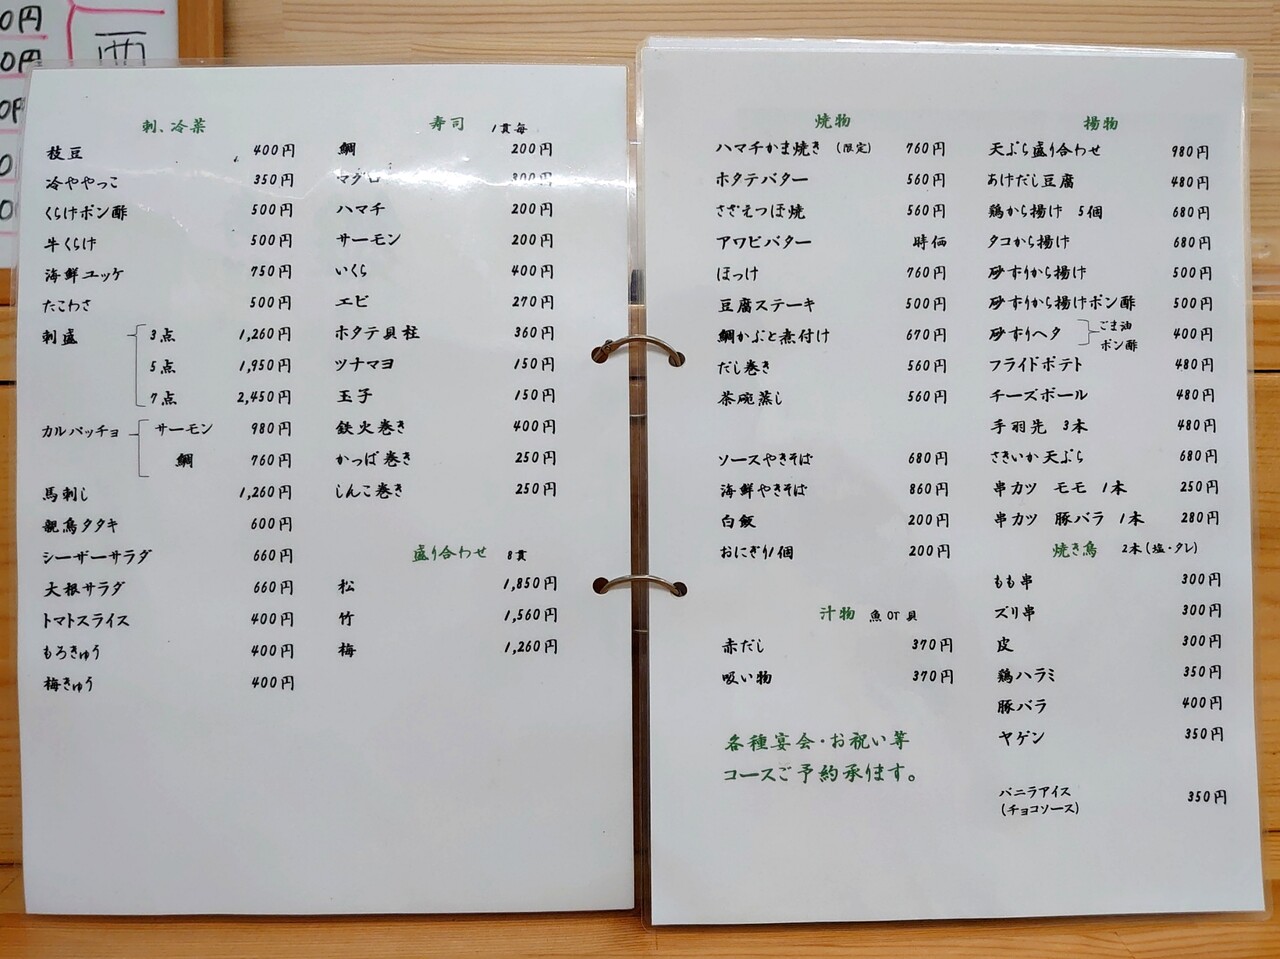 刺、冷菜
枝豆 400円
冷ややっこ 350円
くらげポン酢 500円
牛くらげ 500円
海鮮ユッケ 750円
たこわさ 500円
刺盛 3点 1,260円
5点 1,950円
7点 2,450円
カルパッチョ サーモン 980円
鯛 760円
馬刺し 1,260円
親鳥タタキ 600円
シーザーサラダ 660円
大根サラダ 660円
トマトスライス 400円
もろきゅう 400円
梅きゅう 400円
寿司 1貫毎
鯛 200円
マグロ 300円
ハマチ 200円
サーモン 200円
いくら 400円
エビ 270円
ホタテ貝柱 360円
ツナマヨ 150円
玉子 150円
鉄火巻き 400円
かっぱ巻き 250円
しんこ巻き 250円
盛り合わせ 8貫
松 1,850円
竹 1,560円
梅 1,260円
焼物
ハマチかま焼き (限定) 760円
ホタテバター 560円
さざえつぼ焼 560円
アワビバター 時価
ほっけ 760円
豆腐ステーキ 500円
鯛かぶと煮付け 670円
だし巻き 560円
茶碗蒸し 560円
ソースやきそば 680円
海鮮やきそば 860円
白飯 200円
おにぎり1個 200円
汁物 魚OT貝
赤だし 370円
吸い物 370円
各種宴会・お祝い等
コースご予約承ります。
揚物
天ぷら盛り合わせ 980円
あげだし豆腐 480円
鶏から揚げ 5個 680円
タコから揚げ 680円
砂ずりから揚げ 500円
砂ずりから揚げポン酢 500円
砂ずりヘタ ごま油 ポン酢 400円
フライドポテト 480円
チーズボール 480円
手羽先 3本 480円
さきいか天ぷら 680円
串カツ モモ 1本 250円
串カツ 豚バラ 1本 280円
焼き鳥 2本(塩・タレ)
もも串 300円
ズリ串 300円
皮 300円
鶏ハラミ 350円
豚バラ 400円
ヤゲン 350円
バニラアイス 350円
(チョコソース)